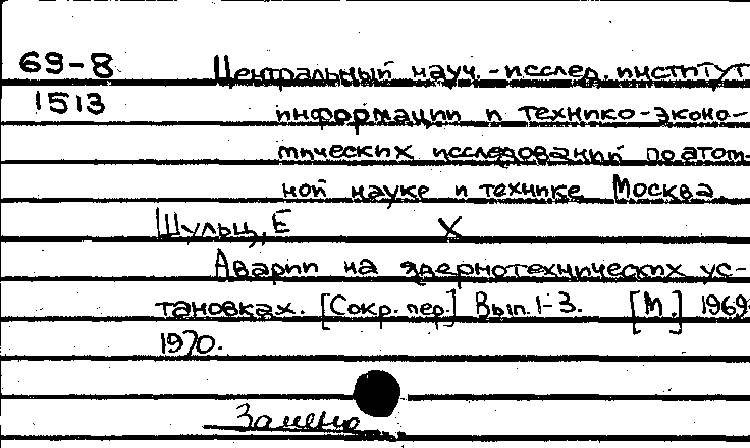 69-8 Центральный науч.-исслед. институт
1513 информации и технико-эконо-
мических исследований по атом-
ной науке и технике Москва
Шульц, Е X
Аварии на ядернотехнических ус-
тановках. [Сокр. пер.] Вып. 1-3. [М.] 1969-
1970.
Замена